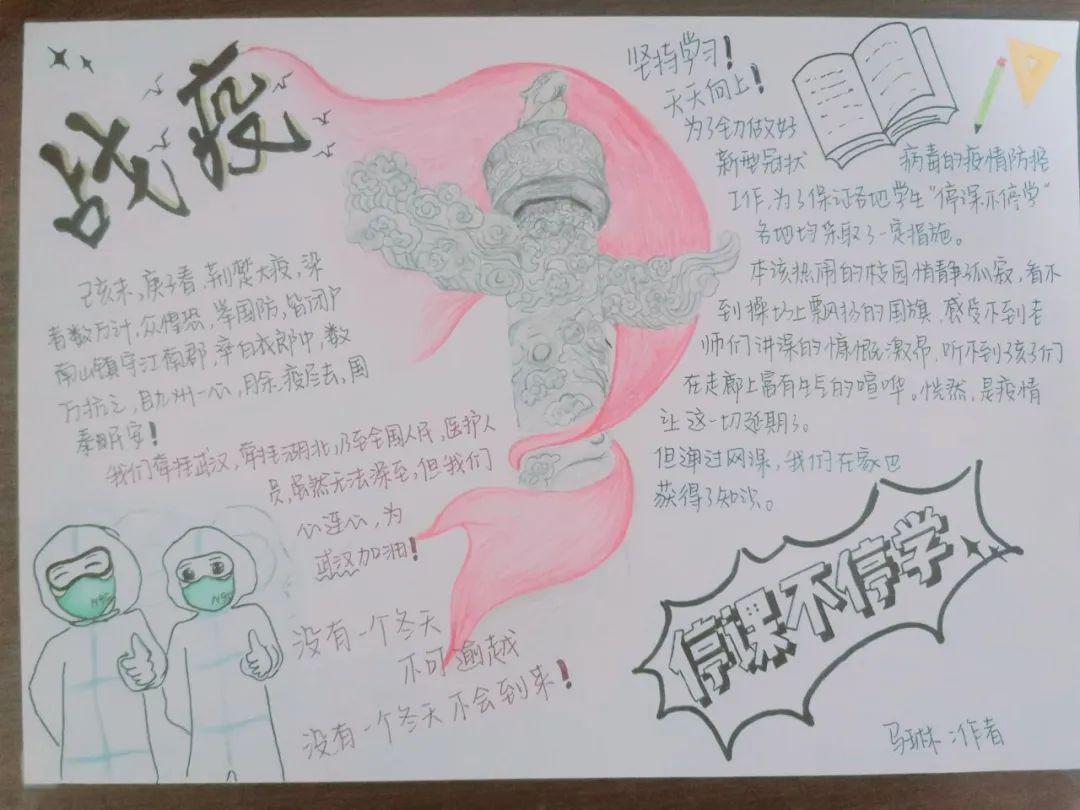 战疫
己亥末,庚子春,荆楚大疫,染
者数万计,众惶恐,举国防,皆闭户
南山镇守江南郡,率白衣郎中,数
万抗之,且九州一心,月余,疫尽去,国
泰民安!
我们牵挂武汉,牵挂湖北,乃至全国人民,医护人
员,虽然无法深至,但我们
心连心,为
武汉加油!
N95
N95
没有一个冬天
不可逾越
没有一个冬天不会到来!
坚持学习!
天天向上!
为了全力做好
新型冠状 病毒的疫情防控
工作,为了保证各地学生“停课不停学”
各地均采取了一定措施。
本该热闹的校园悄静孤寂,看不
到操场上飘扬的国旗,感受不到老
师们讲课的慷慨激昂,听不到孩子们
在走廊上富有生气的喧哗。恍然,是疫情
让这一切延期了。
但通过网课,我们在家也
获得了知识。
停课不停学
马琳:作者